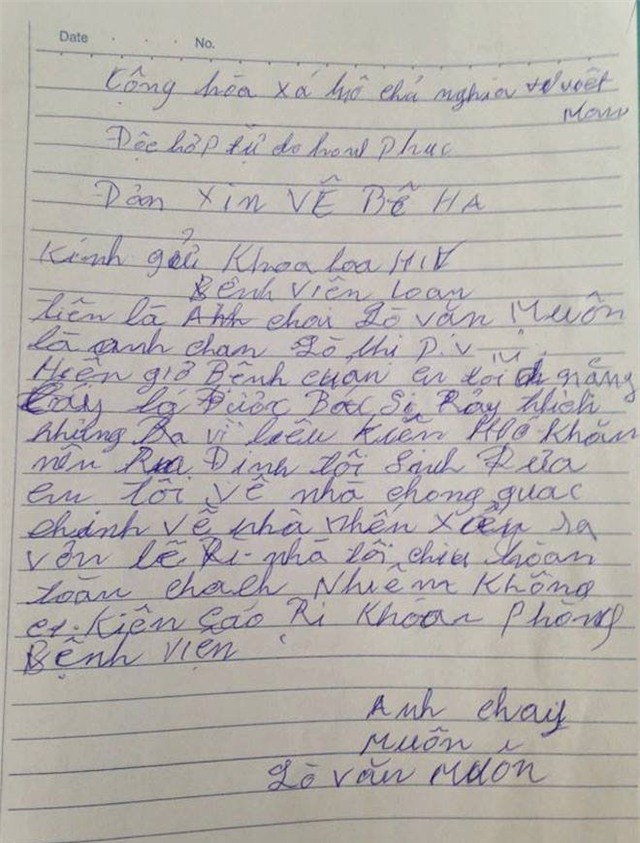 Date . . . No.
Cộng hòa xá hộ chả nghĩa việt
Mam
Độc hôp tự do hanh phuc
Dản XIN VỄ BỄ HA
Kính gửi Khoa loa HIV
Bênh viên Loan
tiên là Anh chai Lò văn Muôn
là anh chan Lò thi P.V
Hiên giờ Bệnh cuản em tôi nắng
lắy là Được Bac Si Rảy thích
những Ra vì liêu Kiễn HOC Khăn
nên Rua Đinh tôi Sinh Rửa
em tôi vê nhà chong quac
chính vê nhà nhến xiểu ra
vớn lễ Rì nhà tôi chiu hoàn
toàn chach Nhiêm Không
Kiên Cáo Rì Khoan phòng
Bệnh viện
Anh chay
Muôn
Lò văn Muôn